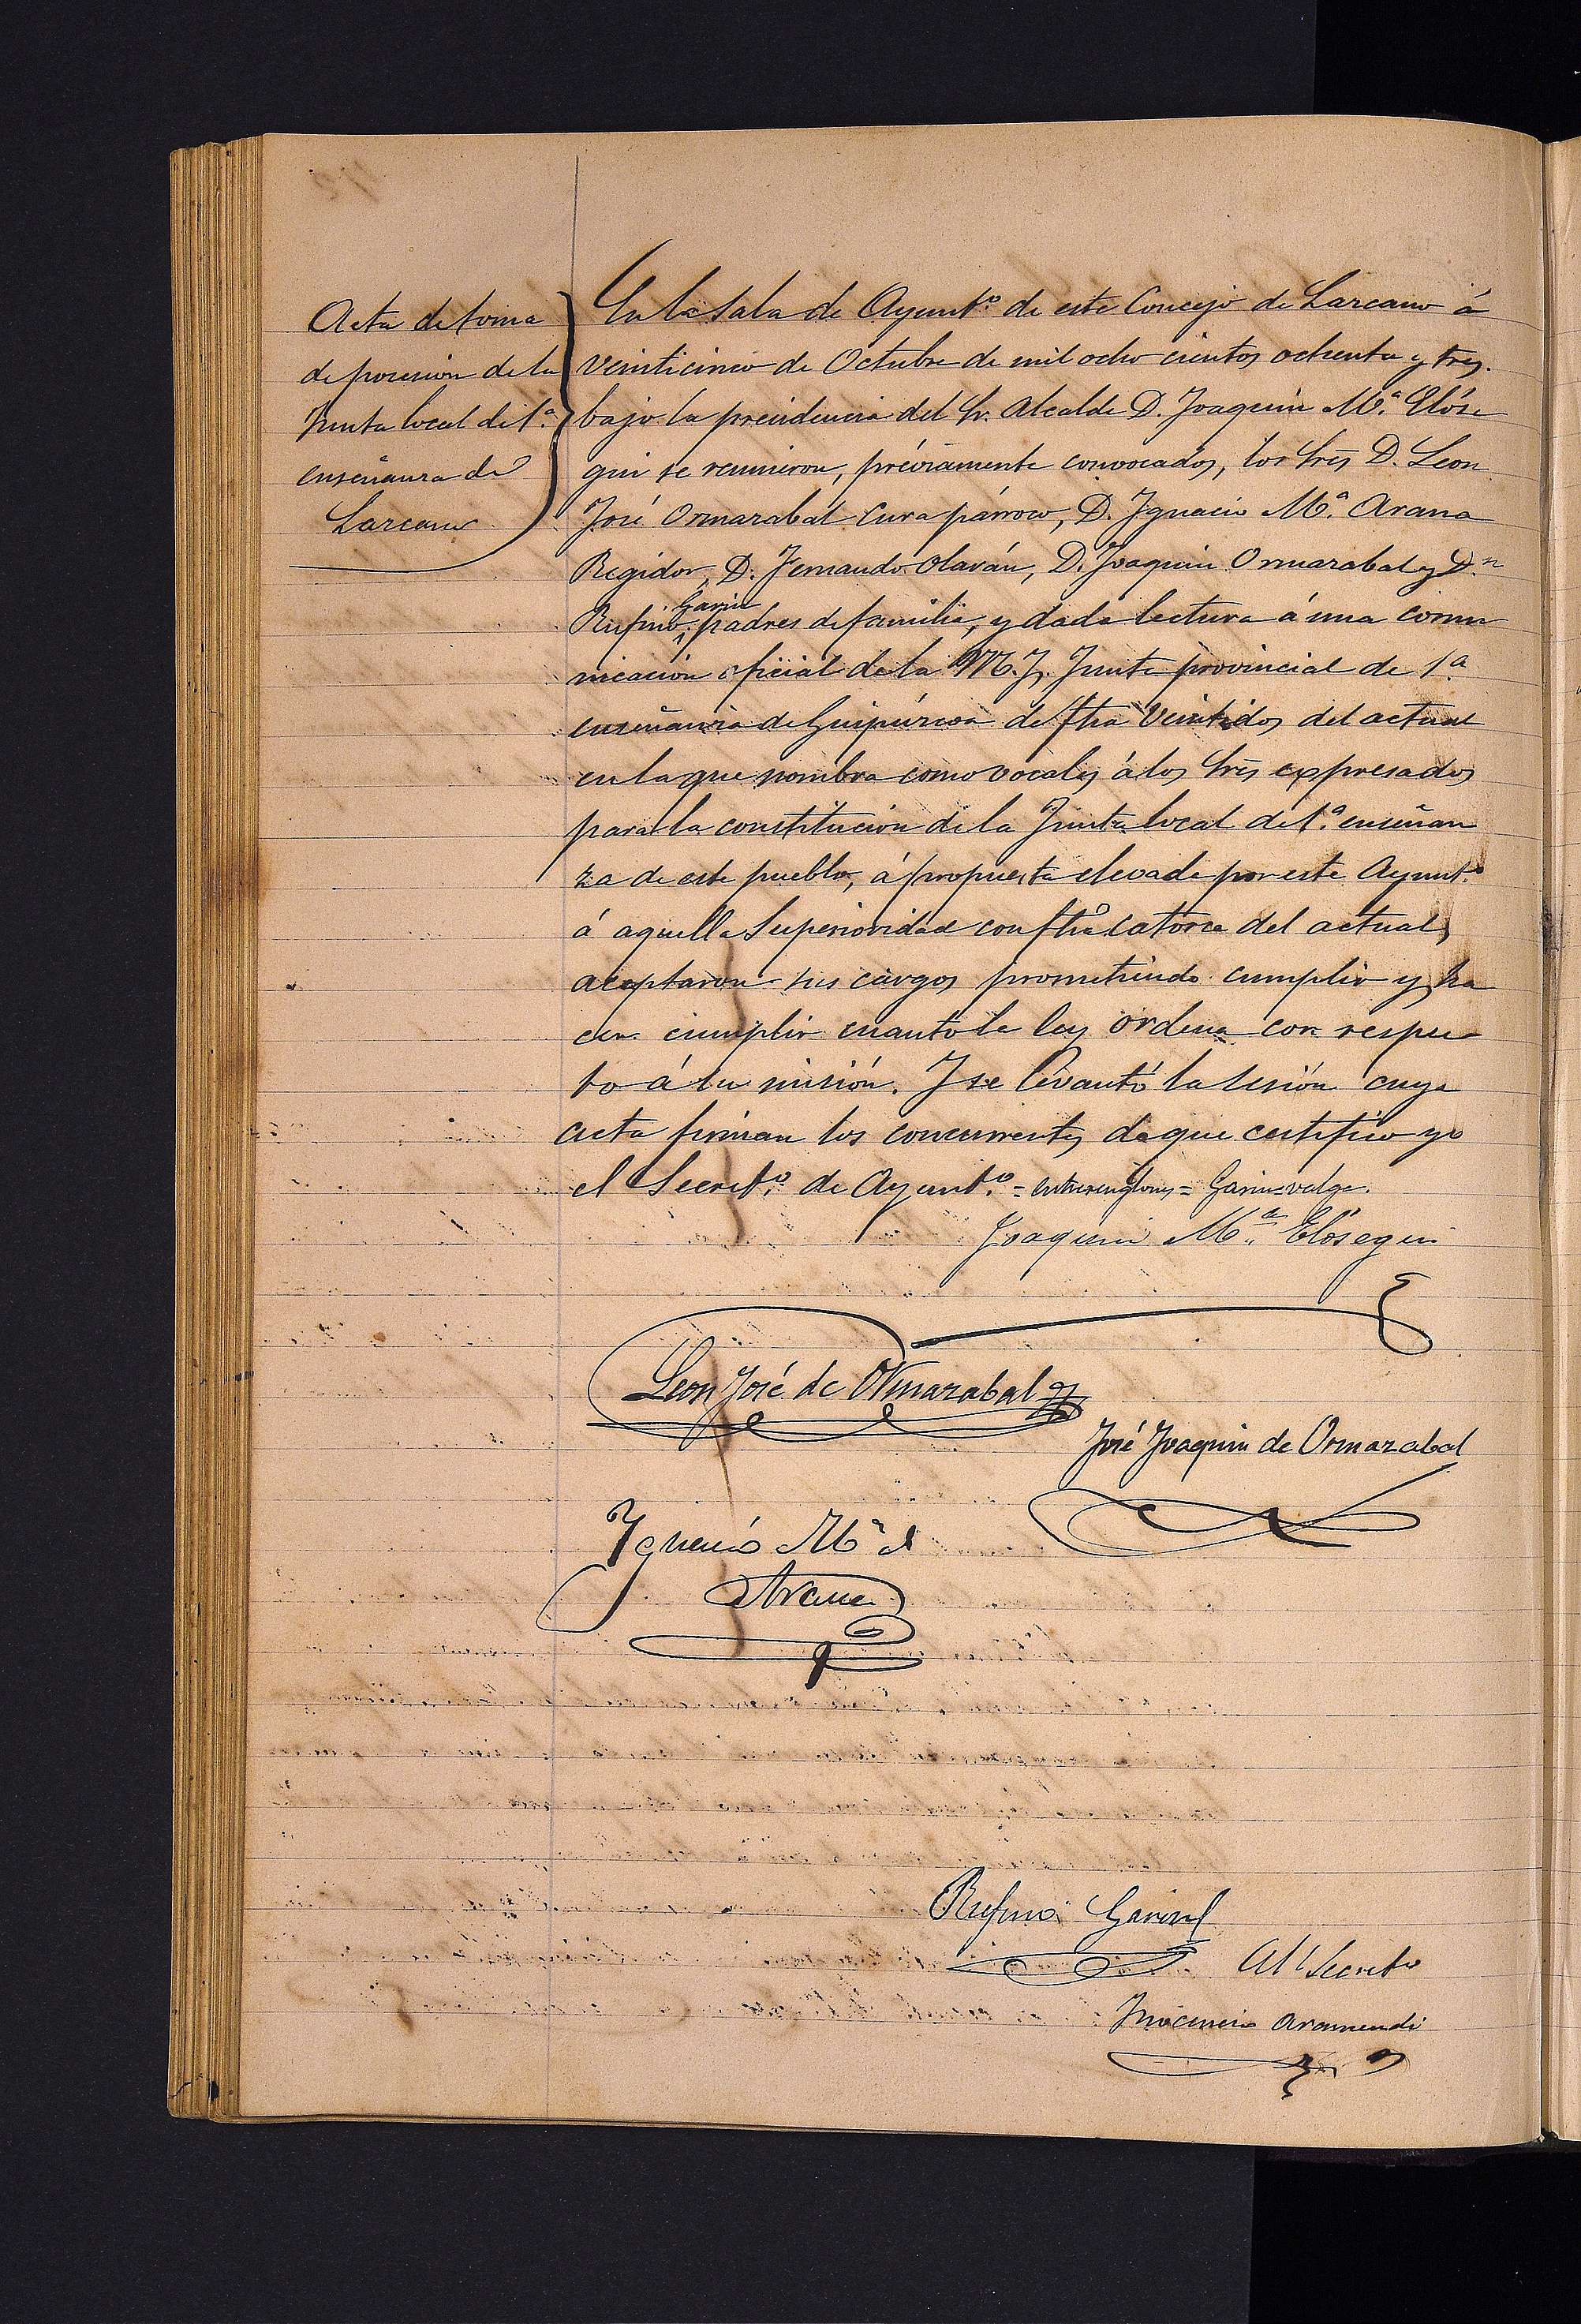 Acta de toma
de posesion de la
Junta local de 1.ª
enseñanza de
Lazcano
En la Sala de Ayunt.º de este Concejo de Lazcano á
veinticinco de Octubre de mil ocho cientos ochenta y tres.
bajo la presidencia del Sr. Alcalde D. Joaquin M.ª Elóse
gui se reunieron, préviamente convocados, los Srēs D. Leon
José Ormazabal Cura párroco, D. Ignacio M.ª Arana
Regidor, D. Fernando Olaván, D. Joaquin Ormazabal y D.n
Garin
Rufino padres de familia, y dada lectura á una comu
nicación oficial de la M. I. Junta provincial de 1.ª
enseñanza de Guipúzcoa de fha veintidos del actual
en la que nombra como vocales á los Srēs expresados
para la constitución de la Junta local de 1.ª enseñan
za de este pueblo, á propuesta elevada por este Ayunt.º
á aquella Superioridad con fha catorce del actual,
aceptaron sus cargos prometiendo cumplir y ha
cer cumplir cuanto la ley ordena con respec
to á su misión. Y se levantó la sesión cuya
acta firman los concurrentes de que certifico yo
el Secret.º de Ayunt.º = entrerenglones = Garin = valga.
Joaquin M.ª Elósegui
Leon José de Ormazabal
José Joaquin de Ormazabal
Ygnacio Mª d
Arana
Rufino Garin
El Secretº
Inocencio Aramendi